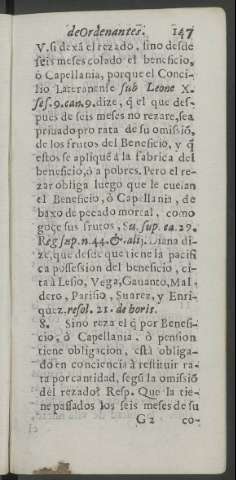 de Ordenantes. 147
V. si dexã el rezado, sino desde
seis meses colado el beneficio,
ò Capellania, porque el Conci-
lio Lateranense sub Leone X.
Ses. 9. can. 9. dize, q̃ el que des-
pues de seis meses no rezare, sea
privado pro rata de su omissiõ,
de los frutos del Beneficio, y q̃
estos se apliquẽ à la fabrica del
beneficio, ò a pobres. Pero el re-
zar obliga luego que le cuelan
el Beneficio, ò Capellania, de
baxo de pecado mortal, como
goce sus frutos, Su. sup. ca. 29.
Reg sup. n. 44. & alij. Diana di-
ze, que desde que tiene la pacifi
ca possession del beneficio, ci-
ta à Lesio, Vega, Gavanto, Mal
dero, Parisio, Suarez, y Enri-
quez. resol. 21. de horis.
8. Si no reza el q̃ por Benefi-
cio, ò Capellania, ò pension
tiene obligacion, està obliga-
do en conciencia à restituir ra-
ta por cantidad, segũ la omissiõ
del rezado? Resp. Que la tie-
ne passados los seis meses de su
G 2 co-